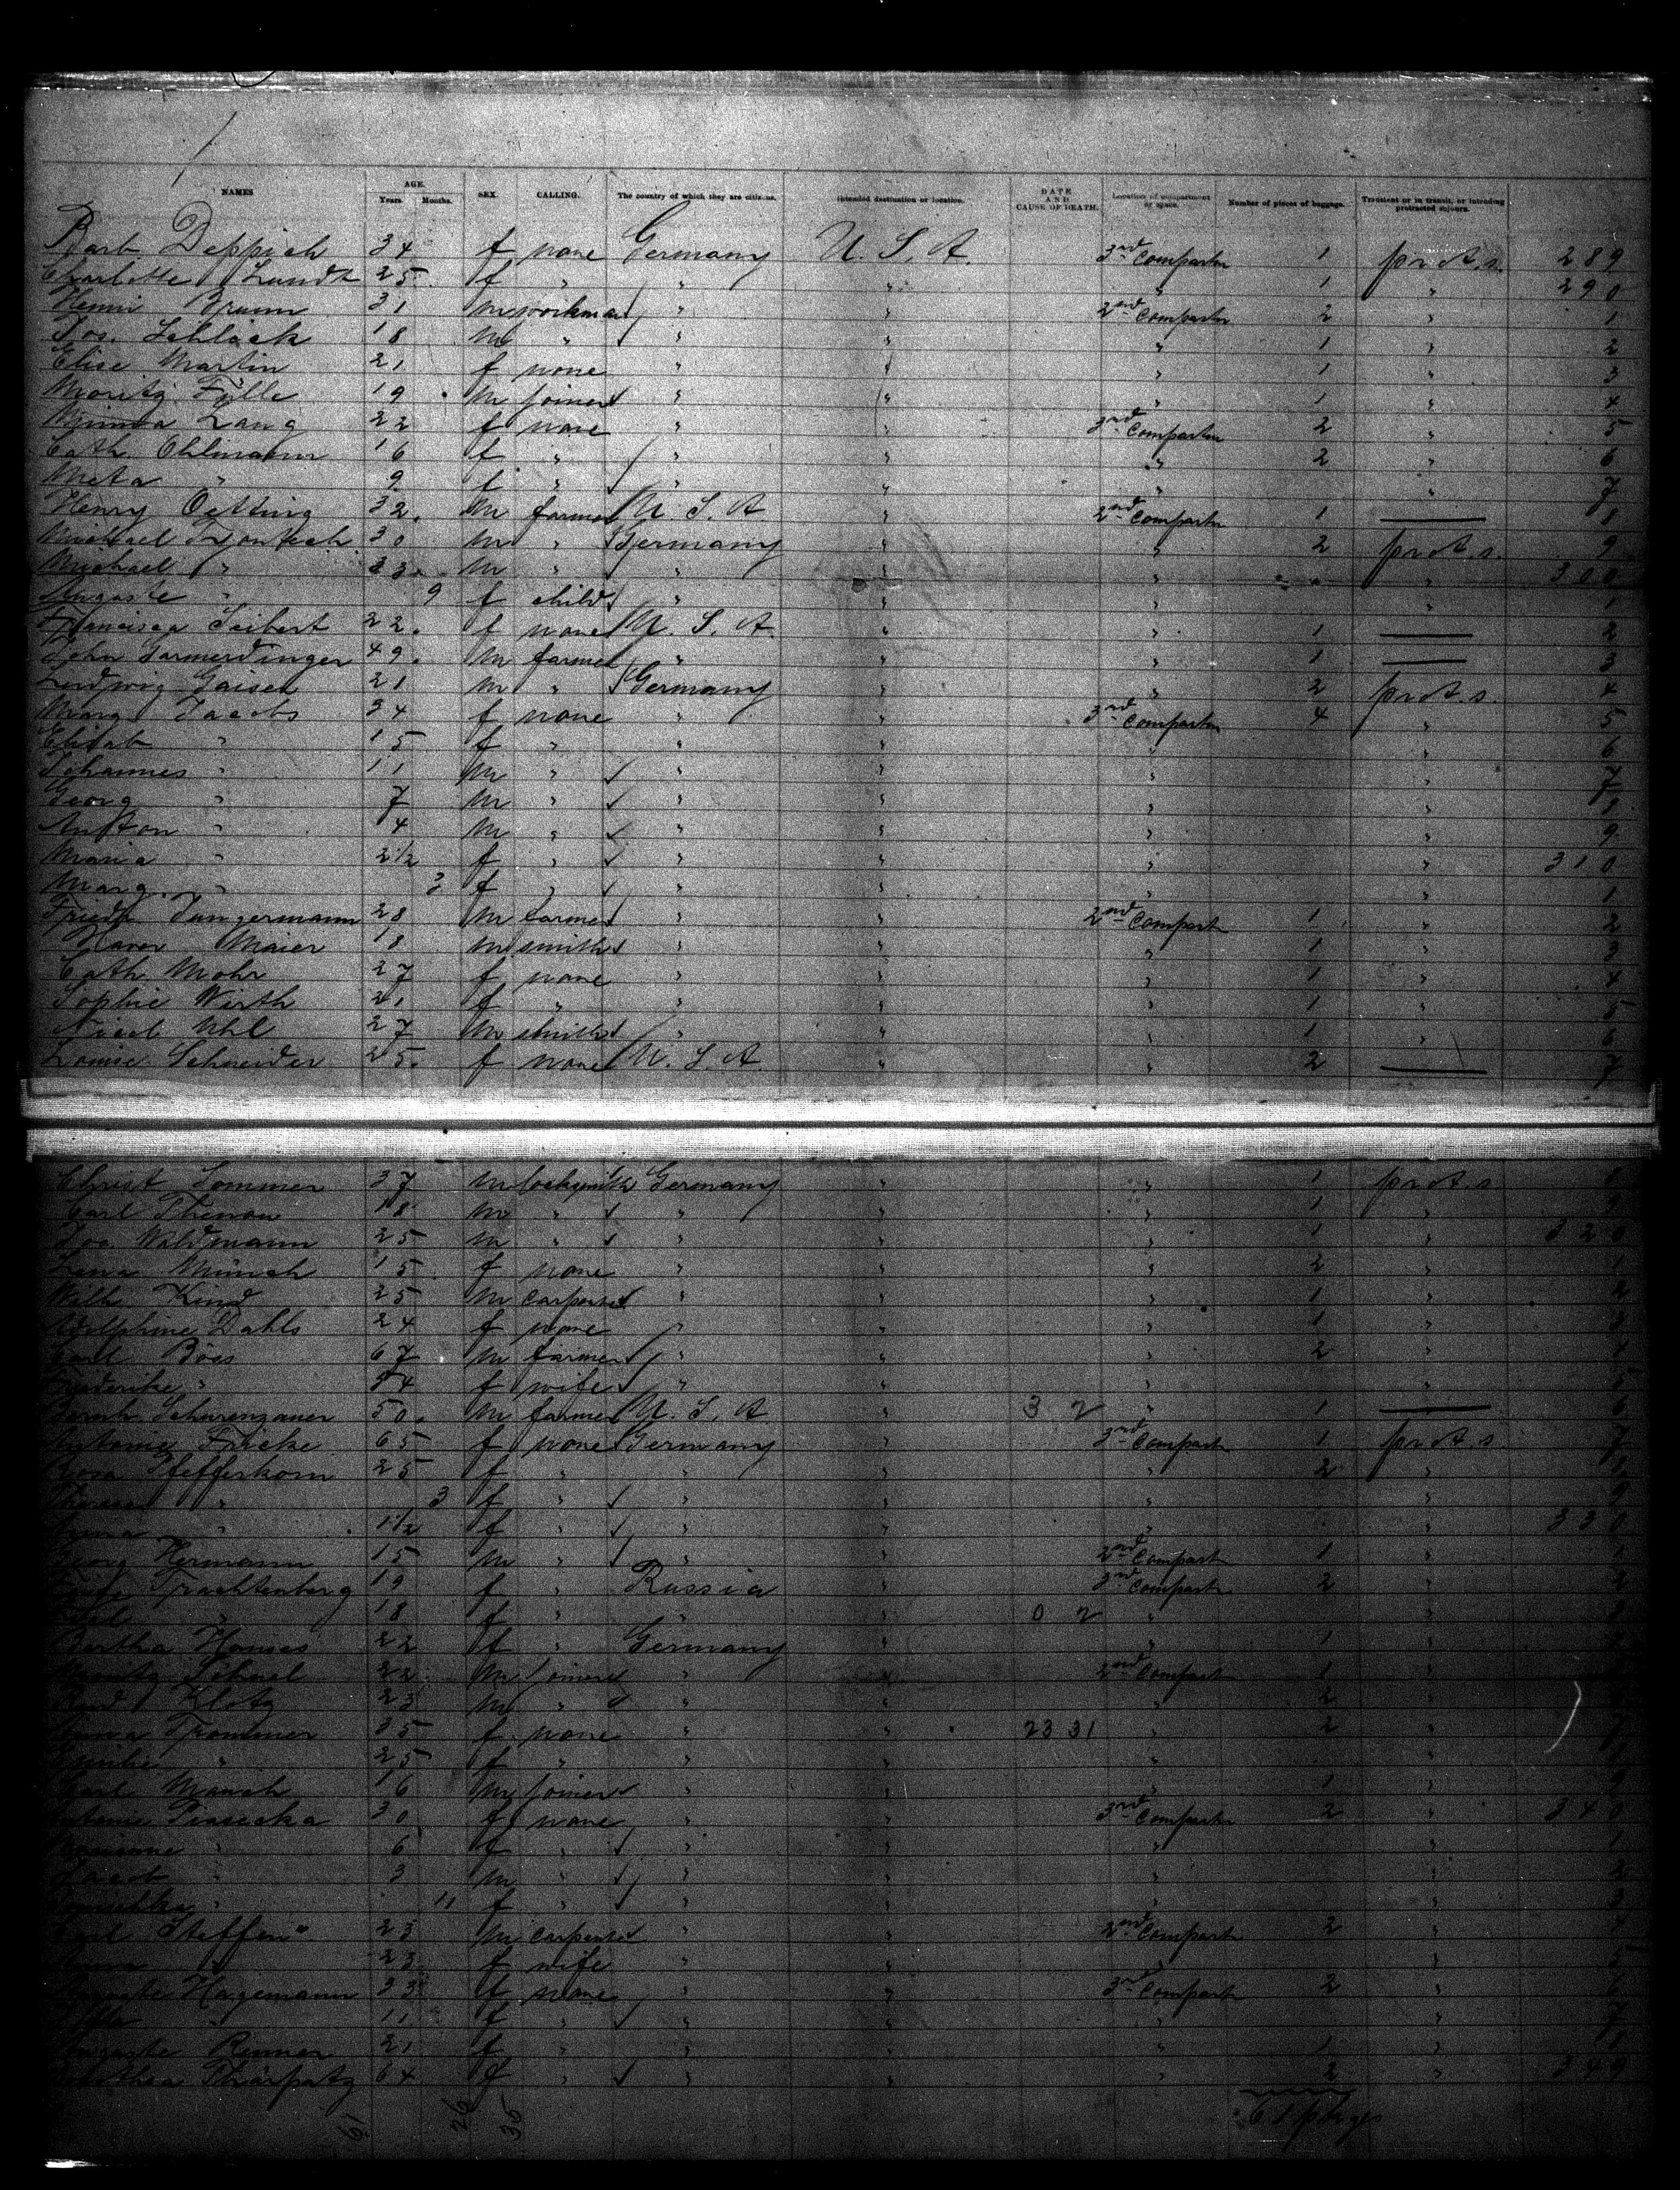 NAMES AGE. Years. Months. SEX. CALLING. The country of which they are citizens. Intended destination or location. DATE AND CAUSE OF DEATH. Location of compartment or space. Number of pieces of baggage. Transient or in transit, or intending protracted sojourn.
Barb Deppich 34 f none Germany U. S. A. 3rd Compartm 1 prot. s. 289
Charlotte Lundt 25 f " " " " 1 " 290
Henni Braun 31 m workman " " 2nd Compartm 2 " 1
Jos. Schlöck 18 m " " " " 1 " 2
Elise Martin 21 f none " " " 1 " 3
Moritz Fülle 19 m joiner " " " 1 " 4
Minna Lang 22 f none " " 3rd Compartm 2 " 5
Cath. Ohlmann 16 f " " " " 2 " 6
Meta " 9 f " " " " " 7
Henry Oetting 32 m farmer U. S. A. " 2nd Compartm 1 — 8
Michael 30 m " Germany " " 2 prot. s. 9
Michael " 33 m " " " " " 300
Auguste " 9 f child " " " " 1
Francisca Seibert 22 f none U. S. A. " " 1 — 2
John Sarmerdinger 49 m farmer " " " 1 — 3
Ludwig Gaiser 21 m " Germany " " 2 prot. s. 4
Marg Jacobs 34 f none " " 3rd Compartm 4 " 5
Elisab " 15 f " " " " " 6
Johannes " 11 m " " " " " 7
Georg " 7 m " " " " " 8
Anton " 4 m " " " " " 9
Maria " 2 1/2 f " " " " " 310
Marg. " 3 f " " " " " 1
Friedr. Jungermann 28 m farmer " " 2nd Compart 1 " 2
Xaver Maier 18 m smith " " " 1 " 3
Cath Mohr 27 f none " " " 1 " 4
Sophie Wirth 21 f " " " " 1 " 5
Nicol Uhl 27 m smith " " " 1 " 6
Louise Schneider 25 f none U. S. A. " " 2 — 7
Christ Sommer 37 m locksmith Germany " " 1 prot. s. 8
Carl Thenau 18 m " " " " 1 " 9
Jos. Waldmann 25 m " " " " 1 " 320
Lena Münch 15 f none " " " 2 " 1
Wilh. Kind 25 m carpenter " " " 1 " 2
Adolphine Dahls 24 f none " " " 1 " 3
Carl Böes 67 m farmer " " " 2 " 4
Friederike " 54 f wife " " " " 5
50 m farmer U. S. A. " 3 2 " 1 — 6
Antonie Fricke 65 f none Germany " 3rd Compart 1 prot. s. 7
Rosa Pfefferkorn 25 f " " " " 2 " 8
Therese " 3 f " " " " " 9
Anna " 1 1/2 f " " " " " 330
Georg Hermann 15 m " " " 2nd Compart 1 " 1
Trachtenberg 19 f " Russia " 3rd Compart 2 " 2
" 18 f " " " 0 2 " " 3
Bertha Hanses 22 f " Germany " " 1 " 4
Moritz 22 m joiner " " 2nd Compart 1 " 5
Klotz 23 m " " " " 2 " 6
Anna Trommer 35 f none " " 23 31 " 2 " 7
Emilie " 25 f " " " " " 8
Carl Münch 16 m joiner " " " 1 " 9
Antonie Piasecka 30 f none " " 3rd Compart 2 " 340
Marianne " 6 f " " " " " 1
Jacob " 3 m " " " " " 2
" 11 f " " " " " 3
Carl Steffen 23 m carpenter " " 2nd Compart 2 " 4
Anna " 23 f wife " " " " 5
Auguste Hagemann 33 f none " " 3rd Compart 2 " 6
" 11 f " " " " " 7
Auguste Renner 21 f " " " " 1 " 8
Dorothea 64 f " " " " 2 " 349
61 26 35 61 pkges